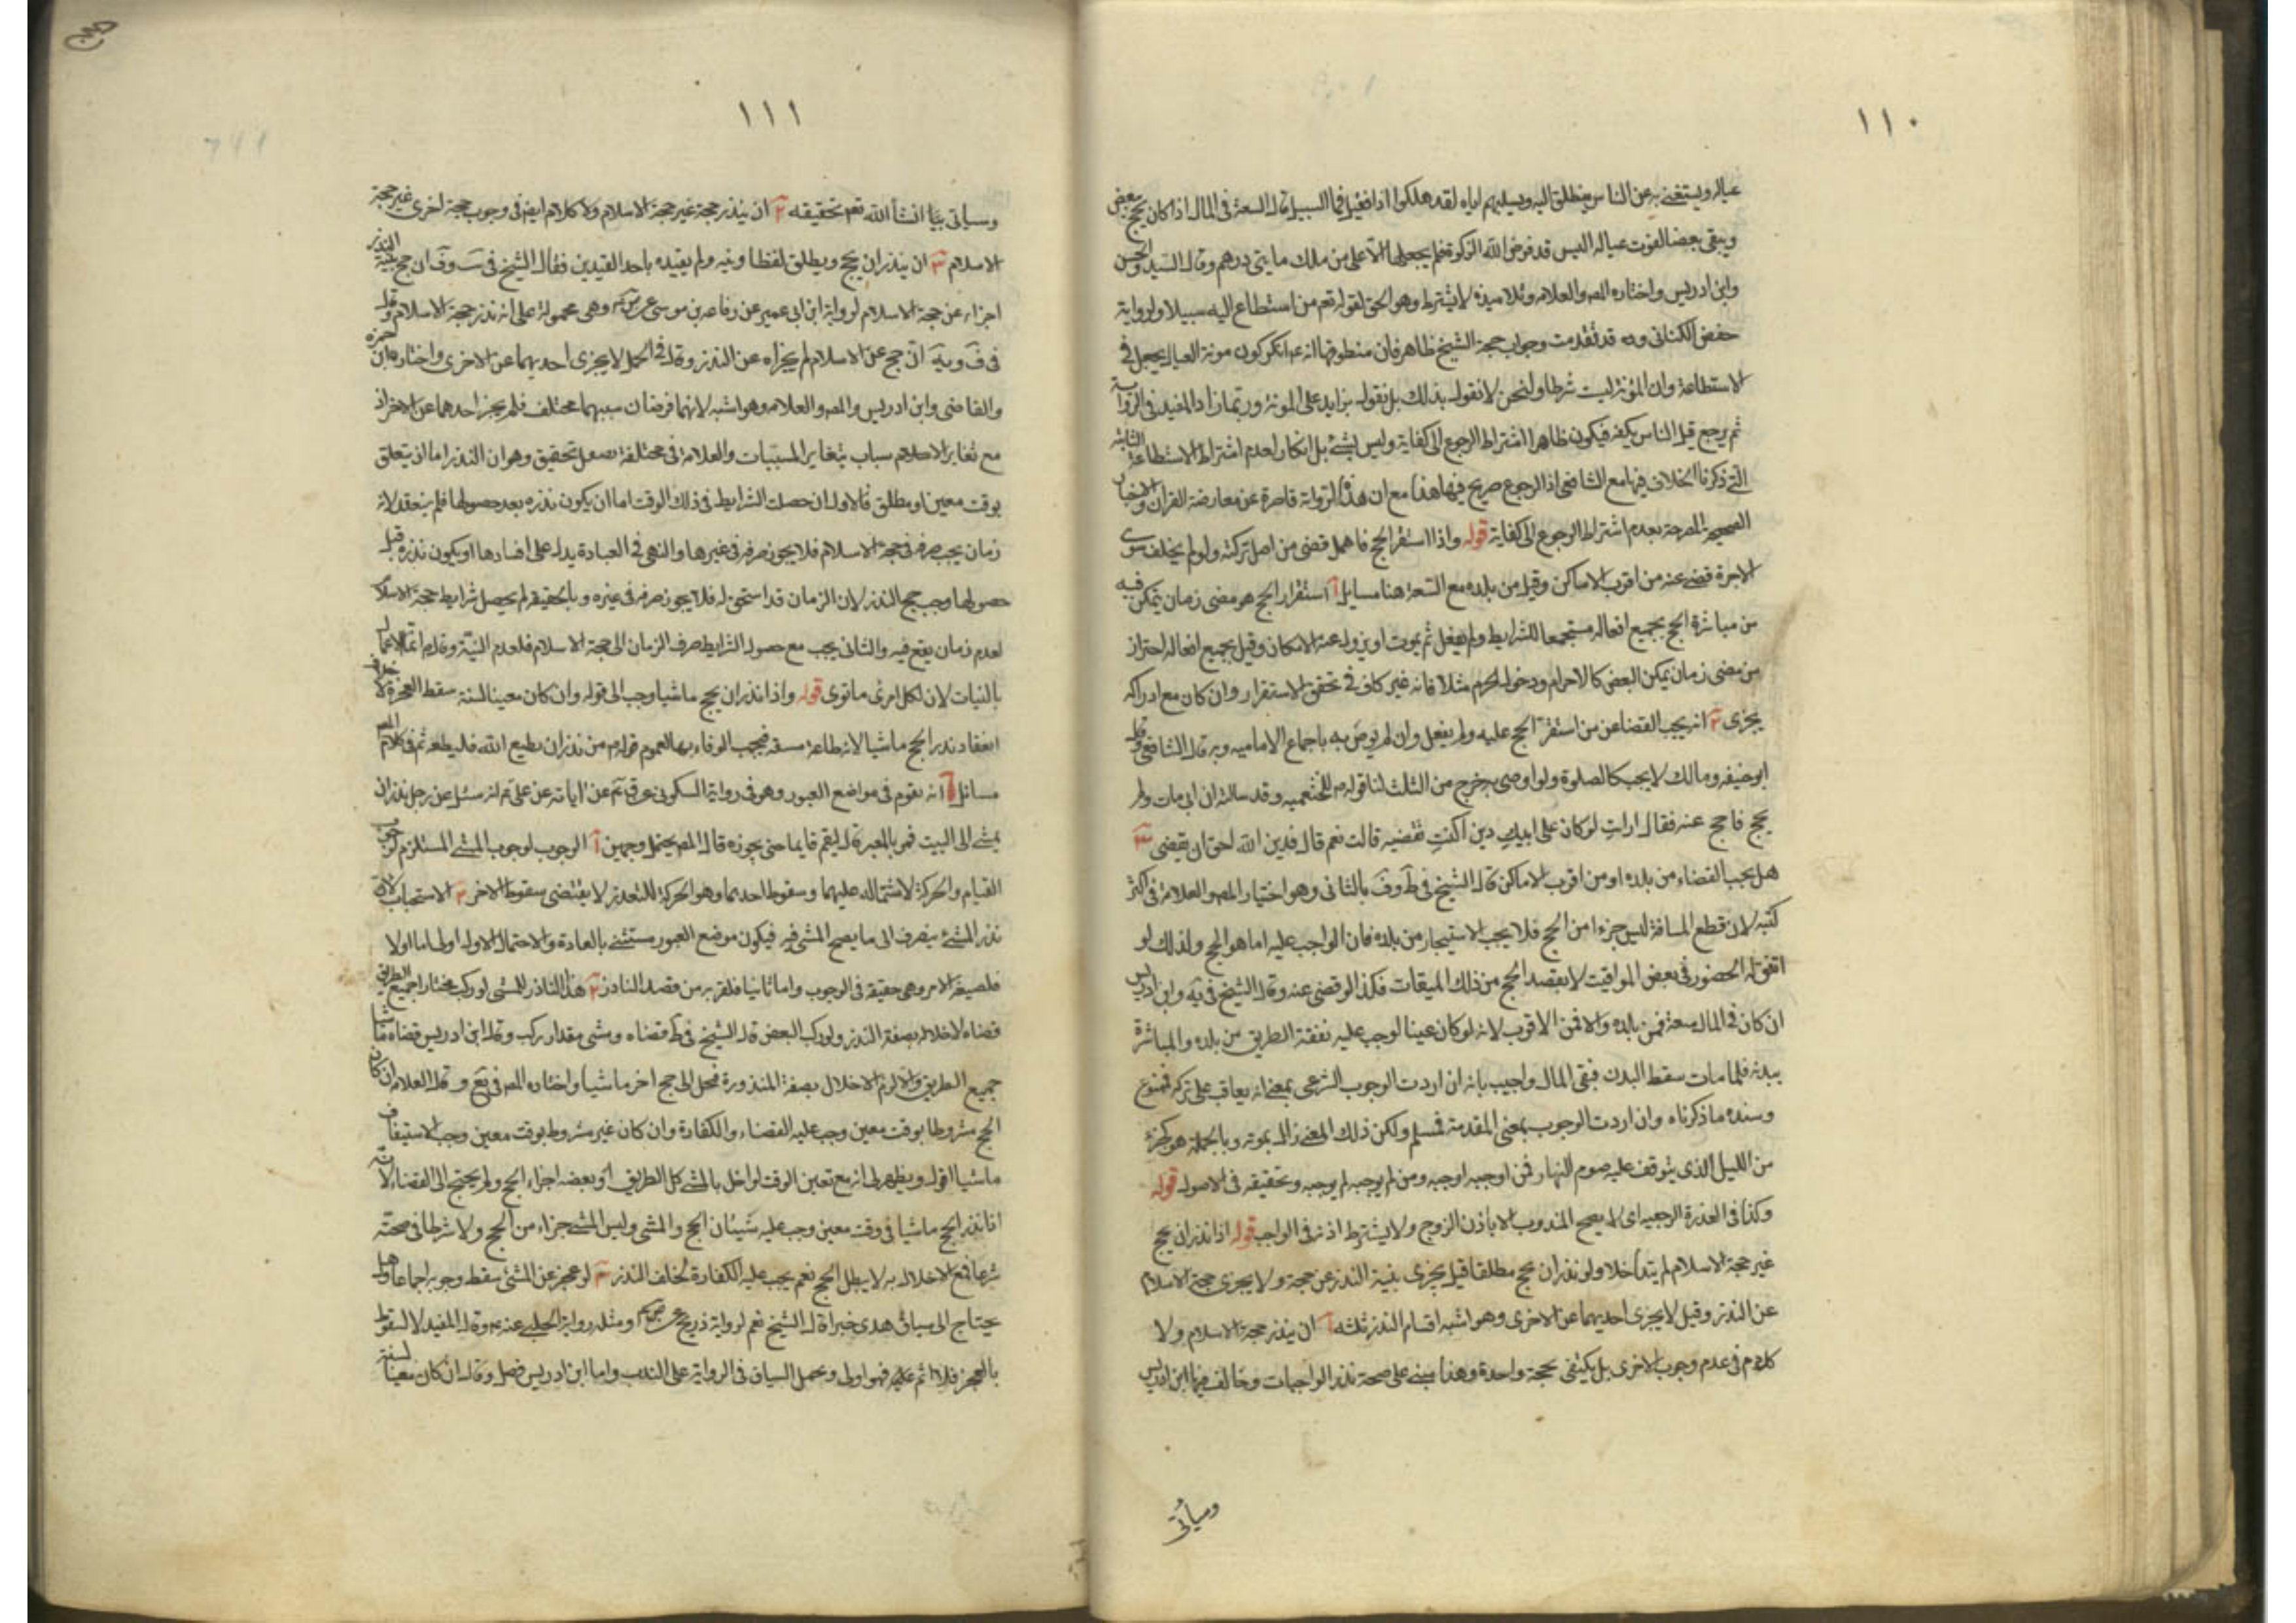 ١١٠
عياله ويستغنى به عن الناس ينطلق اليه ويسلبهم اياه لقد هلكوا اذا فقيل فما السبيل قال السعة فى المال اذا كان يحج ببعض
ويبقى بعضا لقوت عياله اليس قد فرض الله الزكوة فلم يجعلها الا على من ملك مأتى درهم وقال السيد والحسن
وابن ادريس واختاره المص والعلامه وتلاميذه لا يشترط وهو الحق لقوله تعم من استطاع اليه سبيلا ولرواية
حفص الكناني وقد تقدمت وجواب حجة الشيخ ظاهر فان منطوقها انه ع انكر كون مونة العيال يجعل فى
الاستطاعة وان المؤنة ليست شرطا ولنحن لا نقول بذلك بل نقول بزايد على المونة وربما زاد المفيد فى الرواية
ثم يرجع فيسئل الناس بكفه فيكون ظاهرا اشتراط الرجوع الى كفاية وليس بشئ بل انكار لعدم اشتراط الاستطاعة الثابتة
التى ذكرنا الخلاف فيها مع الشافعى اذ الرجوع صريح فيها هذا مع ان هذه الرواية قاصرة عن معارضة القران والاخبار
الصحيحة المصرحة بعدم اشتراط الرجوع الى كفاية قوله واذا استقر الحج فاهمل قضى من اصل تركته ولو لم يخلف سوى
الاجرة قضى عنه من اقرب الاماكن وقيل من بلده مع السعة هنا مسايل آ استقرار الحج هو مضى زمان يتمكن فيه
من مباشرة الحج بجميع افعاله مستجمعا للشرايط ولم يفعل ثم يموت او يزول عنه الامكان وقيل بجميع افعاله احتراز
من مضى زمان يمكن البعض كالاحرام ودخول الحرم مثلا فانه غير كاف فى تحقق الاستقرار وان كان مع ادراكه
يجزى ٢ انه يجب القضا عن من استقر الحج عليه ولم يفعل وان لم يوص به باجماع الاماميه وبه قال الشافعى وقال
ابو حنيفه ومالك لا يجب كالصلوة ولو اوصى به خرج من الثلث لنا قوله ص للخثعميه وقد سالته ان ابى مات ولم
يحج فاحج عنه فقال ارايت لو كان على ابيك دين اكنت تقضيه قالت نعم قال فدين الله احق ان يقضى ٣
هل يجب القضاء من بلده او من اقرب الاماكن قال الشيخ فى ط وف بالثانى وهو اختيار المص والعلامة فى اكثر
كتبه لان قطع المسافة ليس جزءا من الحج فلا يجب الاستيجار من بلده فان الواجب عليه اما هو الحج ولذلك لو
اتفق له الحضور فى بعض المواقيت لا بقصد الحج من ذلك الميقات فكذا لو قضى عنه وقال الشيخ فى يه وابن ادريس
ان كان فى المال سعة فمن بلده والا فمن الاقرب لانه لو كان عينا لوجب عليه نفقة الطريق من بلده والمباشرة
ببدنه فلما مات سقط البدن فبقى المال واجيب بانه ان اردت الوجوب الشرعى بمعنى انه يعاقب على تركه فممنوع
وسنده ما ذكرناه وان اردت الوجوب بمعنى المقدمة فمسلم ولكن ذلك المعنى زال بموته وبالجملة هو كجزء
من الليل الذى يتوقف عليه صوم النهار فمن اوجبه اوجبه ومن لم يوجبه لم يوجبه وتحقيقه فى الاصول قوله
وكذا فى العدة الرجعيه اى لا يصح المندوب الا باذن الزوج ولا يشترط اذنه فى الواجب قوله اذا نذر ان يحج
غير حجة الاسلام لم يتداخلا ولو نذر ان يحج مطلقا قيل يجزى بنية النذر عن حجة ولا يجزى حجة الاسلام
عن النذر وقيل لا يجزى احديهما عن الاخرى وهو اشبه اقسام النذر ثلثه آ ان ينذر حجة الاسلام ولا
كلام فى عدم وجوب الاخرى بل يكتفى بحجة واحدة وهذا مبنى على صحة نذر الواجبات وخالف فيها ابن ادريس
وسيأتى
١١١
وسياتى بيانه انشأ الله تعم تحقيقه ٢ ان ينذر حجة غير حجة الاسلام ولا كلام ايض فى وجوب حجة اخرى غير حجة
الاسلام ٣ ان ينذر ان يحج ويطلق لفظا ونيه ولم يقيده باحد القيدين فقال الشيخ فى ان حج بنية النذر
اجزاء عن حجة الاسلام لرواية ابن ابى عمير عن رفاعه بن موسى عن وهى محمولة على انه نذر حجة الاسلام وقال
فى ف ويه ان حج عن الاسلام لم يجزاه عن النذر وقال فى الجمل لا يجزى احديهما عن الاخرى واختاره ابن حمزه
والقاضى وابن ادريس والمص والعلامه وهو اشبه لانهما فرضان سببهما مختلف فلم يجز احدهما عن الاخر اذ
مع تغاير الاسباب يتغاير المسببات والعلامة فى مختلفه تحقيق وهو ان النذر اما ان يتعلق
بوقت معين او مطلق فالاول ان حصلت الشرايط فى ذلك الوقت اما ان يكون نذره بعد حصولها فلم ينعقد لانه
زمان يجب صرفه فى حجة الاسلام فلا يجوز صرفه فى غيرها والنهى فى العبادة يدل على افسادها او يكون نذره قبل
حصولها وجب حج النذر لان الزمان قد استحق له فلا يجوز صرفه فى غيره وبالحقيقه لم يحصل شرايط حجة الاسلام
لعدم زمان يقع فيه والثانى يجب مع حصول الشرايط صرف الزمان الى حجة الاسلام فلعدم النية وقال ص انما الاعمال
بالنيات لان لكل امرئ ما نوى قوله واذا نذر ان يحج ماشيا وجب الى قوله وان كان معينا لسنة سقط العجزه لا خلاف
انعقاد نذر الحج ماشيا لانه طاعة فيجب الوفاء بها لعموم قوله ص من نذر ان يطيع الله فليطعه ثم فى كلام المص
مسائل آ انه يقوم فى مواضع العبور وهو فى رواية السكونى عن عن ابائه عن على ع انه سئل عن رجل نذر ان
يمشى الى البيت فمر بالمعبر قال ليقم قايما حتى يجوزه قال المص يحتمل وجهين آ الوجوب لوجوب المشى المستلزم لوجوب
القيام والحركة لاشتماله عليهما وسقوط احديهما وهو الحركة للتعذر لا يقتضى سقوط الاخر ٢ الاستحباب لان
نذر المشى ينصرف الى ما يصح المشى فيه فيكون موضع العبور مستثنى بالعادة والاحتمال الاول اولى اما اولا
فلصيغة الامر وهى حقيقه فى الوجوب واما ثانيا فلقربه من قصد الناذر ٢ هذا الناذر للمشى لو ركب مختارا جميع الطريق
قضاه لاخلاله بصفة النذر ولو ركب البعض قال الشيخ فى ط قضاه ومشى مقدار ركب وقال ابن ادريس قضاه ماشيا
جميع الطريق والا لزم الاخلال بصفة المنذورة فحمل الى حج اخر ماشيا واختاره المص فى يع وقال العلامه ان كان
الحج مشروطا بوقت معين وجب عليه القضاء والكفارة وان كان غير مشروط بوقت معين وجب الاستيناف
ماشيا اقول ويظهر لى انه مع تعين الوقت لو اخل بالمشى كل الطريق او بعضه اجزاء الحج ولم يحتج الى القضاء لانه
اذا نذر الحج ماشيا فى وقت معين وجب عليه شيئان الحج والمشى وليس المشى جزاء من الحج ولا شرطا فى صحته
شرعا فمع الاخلال به لا يبطل الحج نعم يجب عليه الكفارة لخلف النذر ٣ لو عجز عن المشى سقط وجوبه اجماعا وهل
يحتاج الى سياق هدى خبرا قال الشيخ نعم لرواية ذريح عن ومثله رواية الحلبى عنه ع وقال المفيد لا لسقوط
بالعجز فلا اثم عليه فهو اولى ويحمل السياق فى الرواية على الندب واما ابن ادريس فصل وقال ان كان معينا لسنة